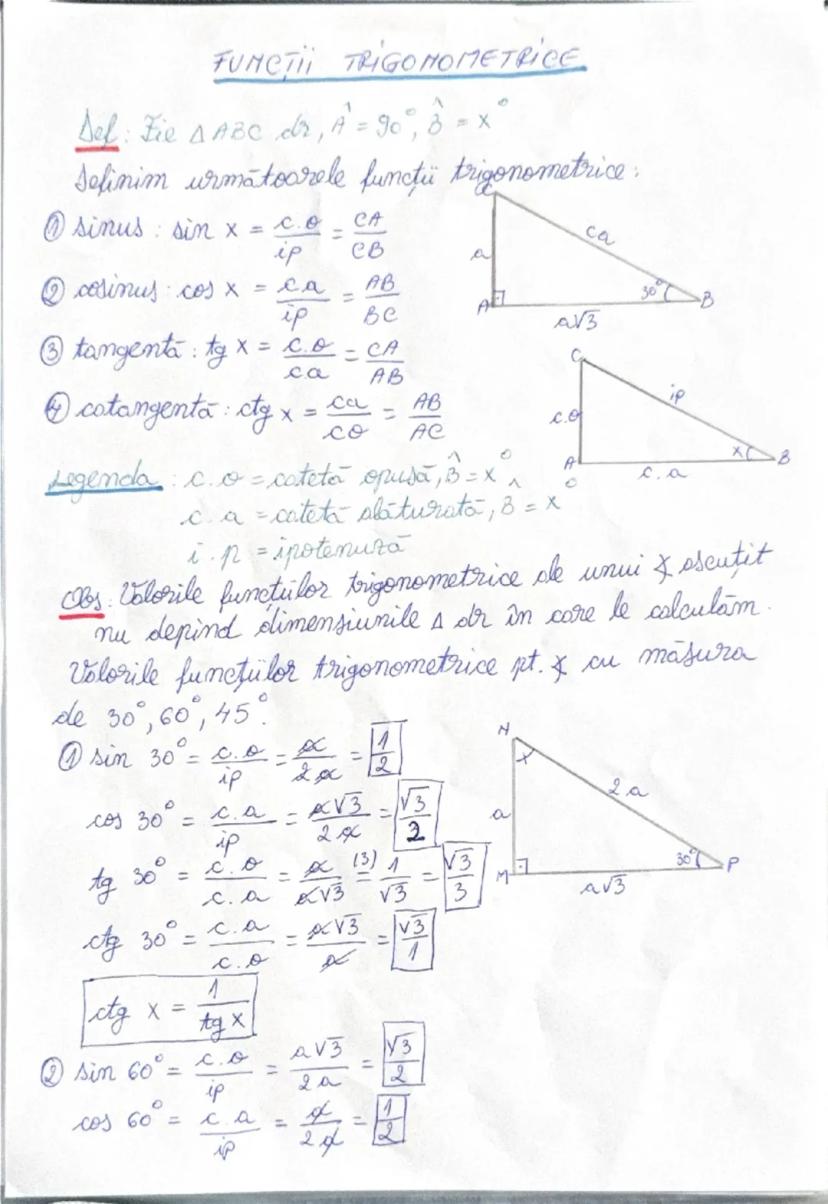 FUNCȚII TRIGONOMETRICE
Def: Fie Δ ABC dr, Â = 90°, B̂ = x°
Definim următoarele funcții trigonometrice:
① sinus: sin x = c.o/ip = CA/CB
② cosinus: cos x = c.a/ip = AB/BC
③ tangentă: tg x = c.o/ca = CA/AB
④ cotangentă: ctg x = ca/co = AB/AC
C
a
ca
A
30°
B
a√3
C
c.o
ip
A
x
B
c.a
Legenda: c.o = catetă opusă, B̂ = x°
c.a = catetă alăturată, B̂ = x°
i.p = ipotenuză
Obs: Valorile funcțiilor trigonometrice ale unui ∢ ascuțit
nu depind dimensiunile Δ dr în care le calculăm.
Valorile funcțiilor trigonometrice pt. ∢ cu măsura
de 30°, 60°, 45°.
① sin 30° = c.o/ip = a/2a = 1/2
cos 30° = c.a/ip = a√3/2a = √3/2
tg 30° = c.o/c.a = a/a√3 (3)= 1/√3 = √3/3
ctg 30° = c.a/c.o = a√3/a = √3/1
N
x
a
2a
M
30°
P
a√3
ctg x = 1/tg x
② sin 60° = c.o/ip = a√3/2a = √3/2
cos 60° = c.a/ip = a/2a = 1/2